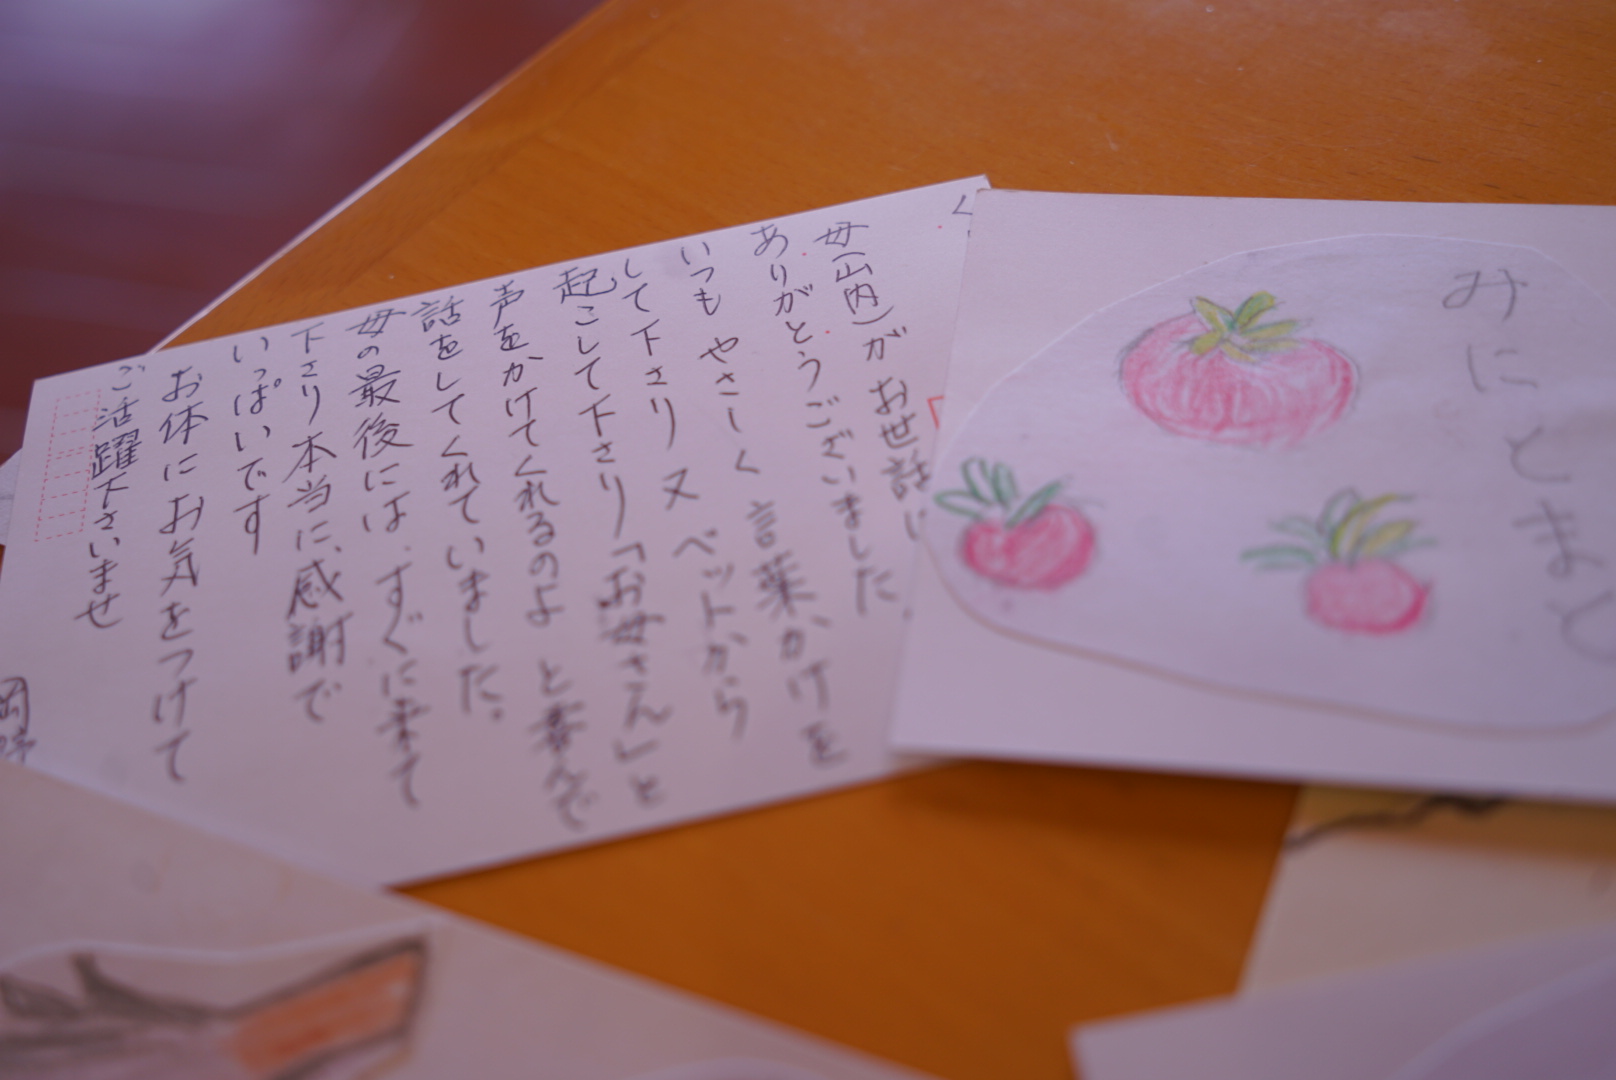 母(山内)が お世話に
ありがとうございました
いつも やさしく 言葉かけを
して下さり 又 ベットから
起こして下さり「お母さん」と
声をかけてくれるのよ と喜んで
話をしてくれていました。
母の最後には、すぐに来て
下さり本当に、感謝で
いっぱいです
お体に お気をつけて
ご活躍下さいませ
みにとまと